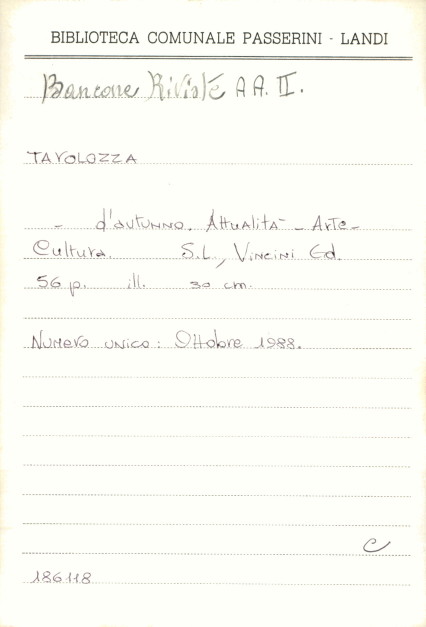 BIBLIOTECA COMUNALE PASSERINI - LANDI
Bancone Riviste AA. II.
TAVOLOZZA
- d'autunno. Attualità - Arte -
Cultura. S.L., Vincini Ed.
56 p. ill. 30 cm.
Numero unico: Ottobre 1988.
C
186118